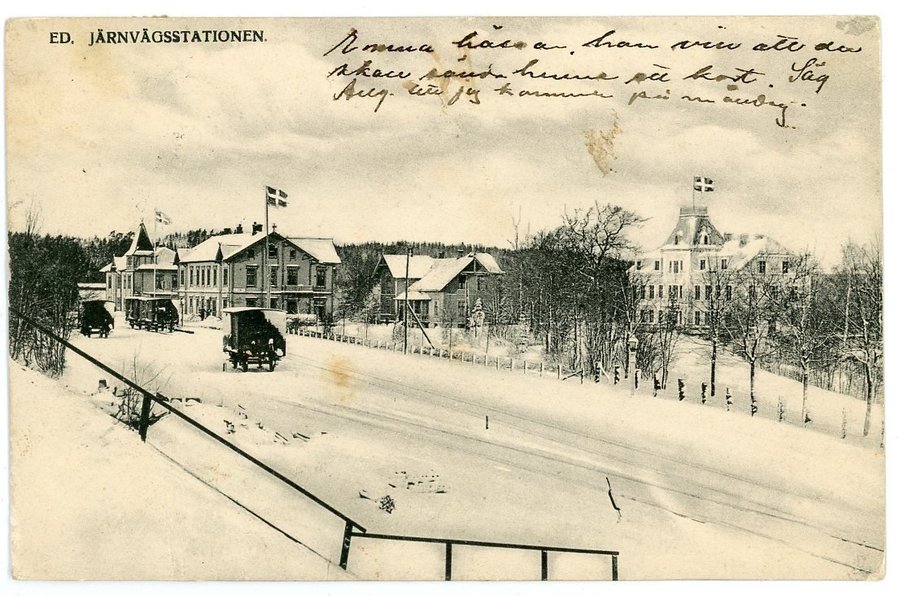 ED. JÄRNVÄGSSTATIONEN.
hälsar, hon vill att du
skall sända henne ett kort. Säg
Aug. att jag kommer på måndag.